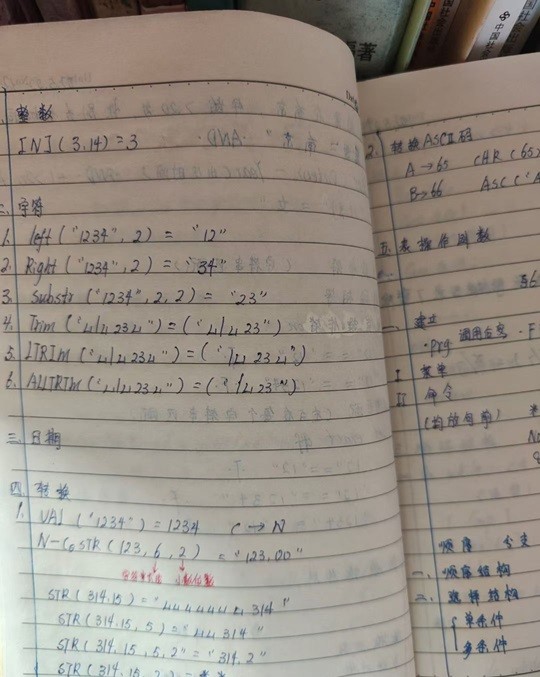 著
中国社
一. 整数
INT(3.14)=3
二. 字符
1. left("1234", 2) = "12"
2. Right("1234", 2) = "34"
3. substr("1234", 2, 2) = "23"
4. Trim("␣1␣234␣")=("␣1␣234")
5. LTRIM("␣1␣234␣")=("1␣234␣")
6. ALLTRIM("␣1␣234␣")=("1␣234")
三. 日期
四. 转换
1. VAL("1234") = 1234 C → N
N-C STR(123, 6, 2) = "123.00"
小数位数
STR(314.15)="␣␣␣␣␣␣␣314"
STR(314.15, 5)="␣␣314"
STR(314.15, 5, 2"="314.2"
STR(314.15, 2)=
2. 转换ASCII码
A→65 CHR(65)
B→66 ASC("A
五. 表操作函数
一. 建立
.prg 调用
I 菜单
II 命令
顺序 分支
一. 顺序结构
二. 选择结构
单条件
多条件